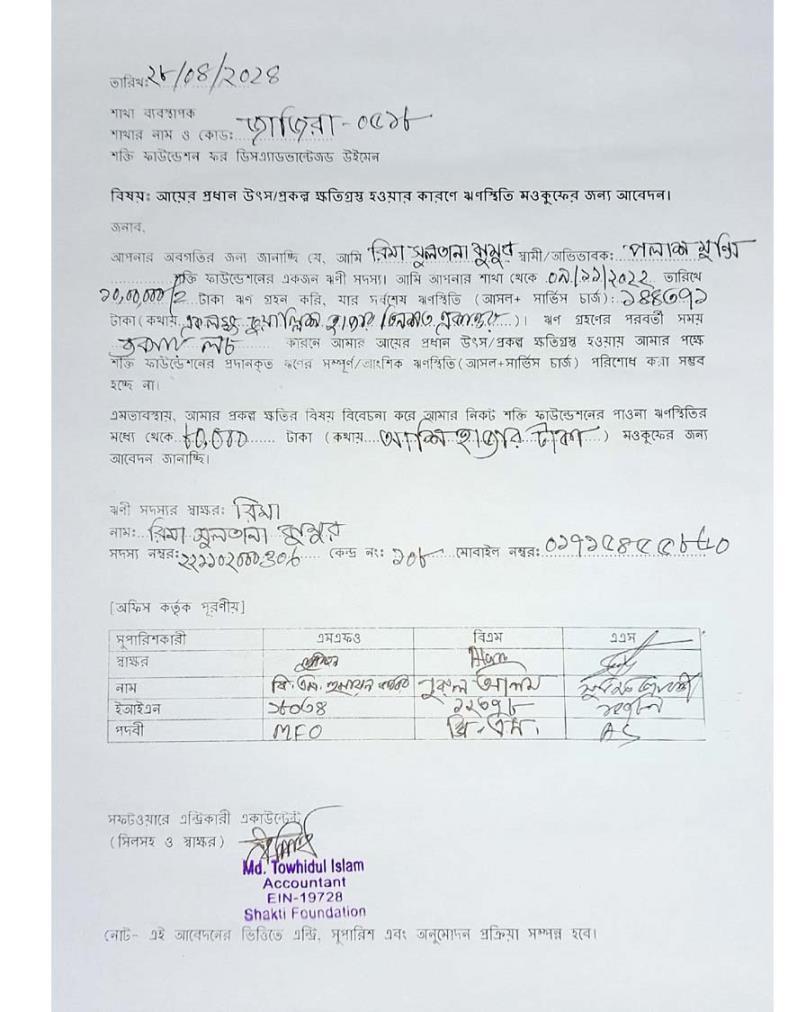 তারিখ: ২৮/০৪/২০২৪
শাখা ব্যবস্থাপক
শাখার নাম ও কোড: জাজিরা-০৫১৮
শক্তি ফাউন্ডেশন ফর ডিসএ্যাডভান্টেজড উইমেন
বিষয়: আয়ের প্রধান উৎস/প্রকল্প ক্ষতিগ্রস্থ হওয়ার কারণে ঋণস্থিতি মওকুফের জন্য আবেদন।
জনাব,
আপনার অবগতির জন্য জানাচ্ছি যে, আমি রিমা সুলতানা ঝুমুর স্বামী/অভিভাবক: পলাশ মুন্সি
শক্তি ফাউন্ডেশনের একজন ঋণী সদস্য। আমি আপনার শাখা থেকে /১১/২০২২ তারিখে
১০,00,000/= টাকা ঋণ গ্রহন করি, যার সর্বশেষ ঋণস্থিতি (আসল+ সার্ভিস চার্জ): ১৪৪৩৭১
টাকা (কথায় একলক্ষ চুয়াল্লিশ হাজার তিনশত একাত্তর )। ঋণ গ্রহণের পরবর্তী সময়
লচ কারনে আমার আয়ের প্রধান উৎস/প্রকল্প ক্ষতিগ্রস্থ হওয়ায় আমার পক্ষে
শক্তি ফাউন্ডেশনের প্রদানকৃত ঋণের সম্পূর্ণ/আংশিক ঋণস্থিতি(আসল+সার্ভিস চার্জ) পরিশোধ করা সম্ভব
হচ্ছে না।
এমতাবস্থায়, আমার প্রকল্প ক্ষতির বিষয় বিবেচনা করে আমার নিকট শক্তি ফাউন্ডেশনের পাওনা ঋণস্থিতির
মধ্যে থেকে ৮০,০০০ টাকা (কথায় আশি হাজার টাকা ) মওকুফের জন্য
আবেদন জানাচ্ছি।
ঋণী সদস্যর স্বাক্ষর: রিমা
নাম: রিমা সুলতানা ঝুমুর
সদস্য নম্বর: কেন্দ্র নং: ১০৮ মোবাইল নম্বর:
[অফিস কর্তৃক পূরণীয়]
সুপারিশকারী এমএফও বিএম এএস
স্বাক্ষর Alam
নাম নুরুল আলম
ইআইএন ১৮০৩৪ ১২৩৭৮
পদবী MFO বি.এম. AS
সফটওয়ারে এন্ট্রিকারী একাউন্টেন্ট
(সিলসহ ও স্বাক্ষর)
Md. Towhidul Islam
Accountant
EIN-19728
Shakti Foundation
নোট- এই আবেদনের ভিত্তিতে এন্ট্রি, সুপারিশ এবং অনুমোদন প্রক্রিয়া সম্পন্ন হবে।